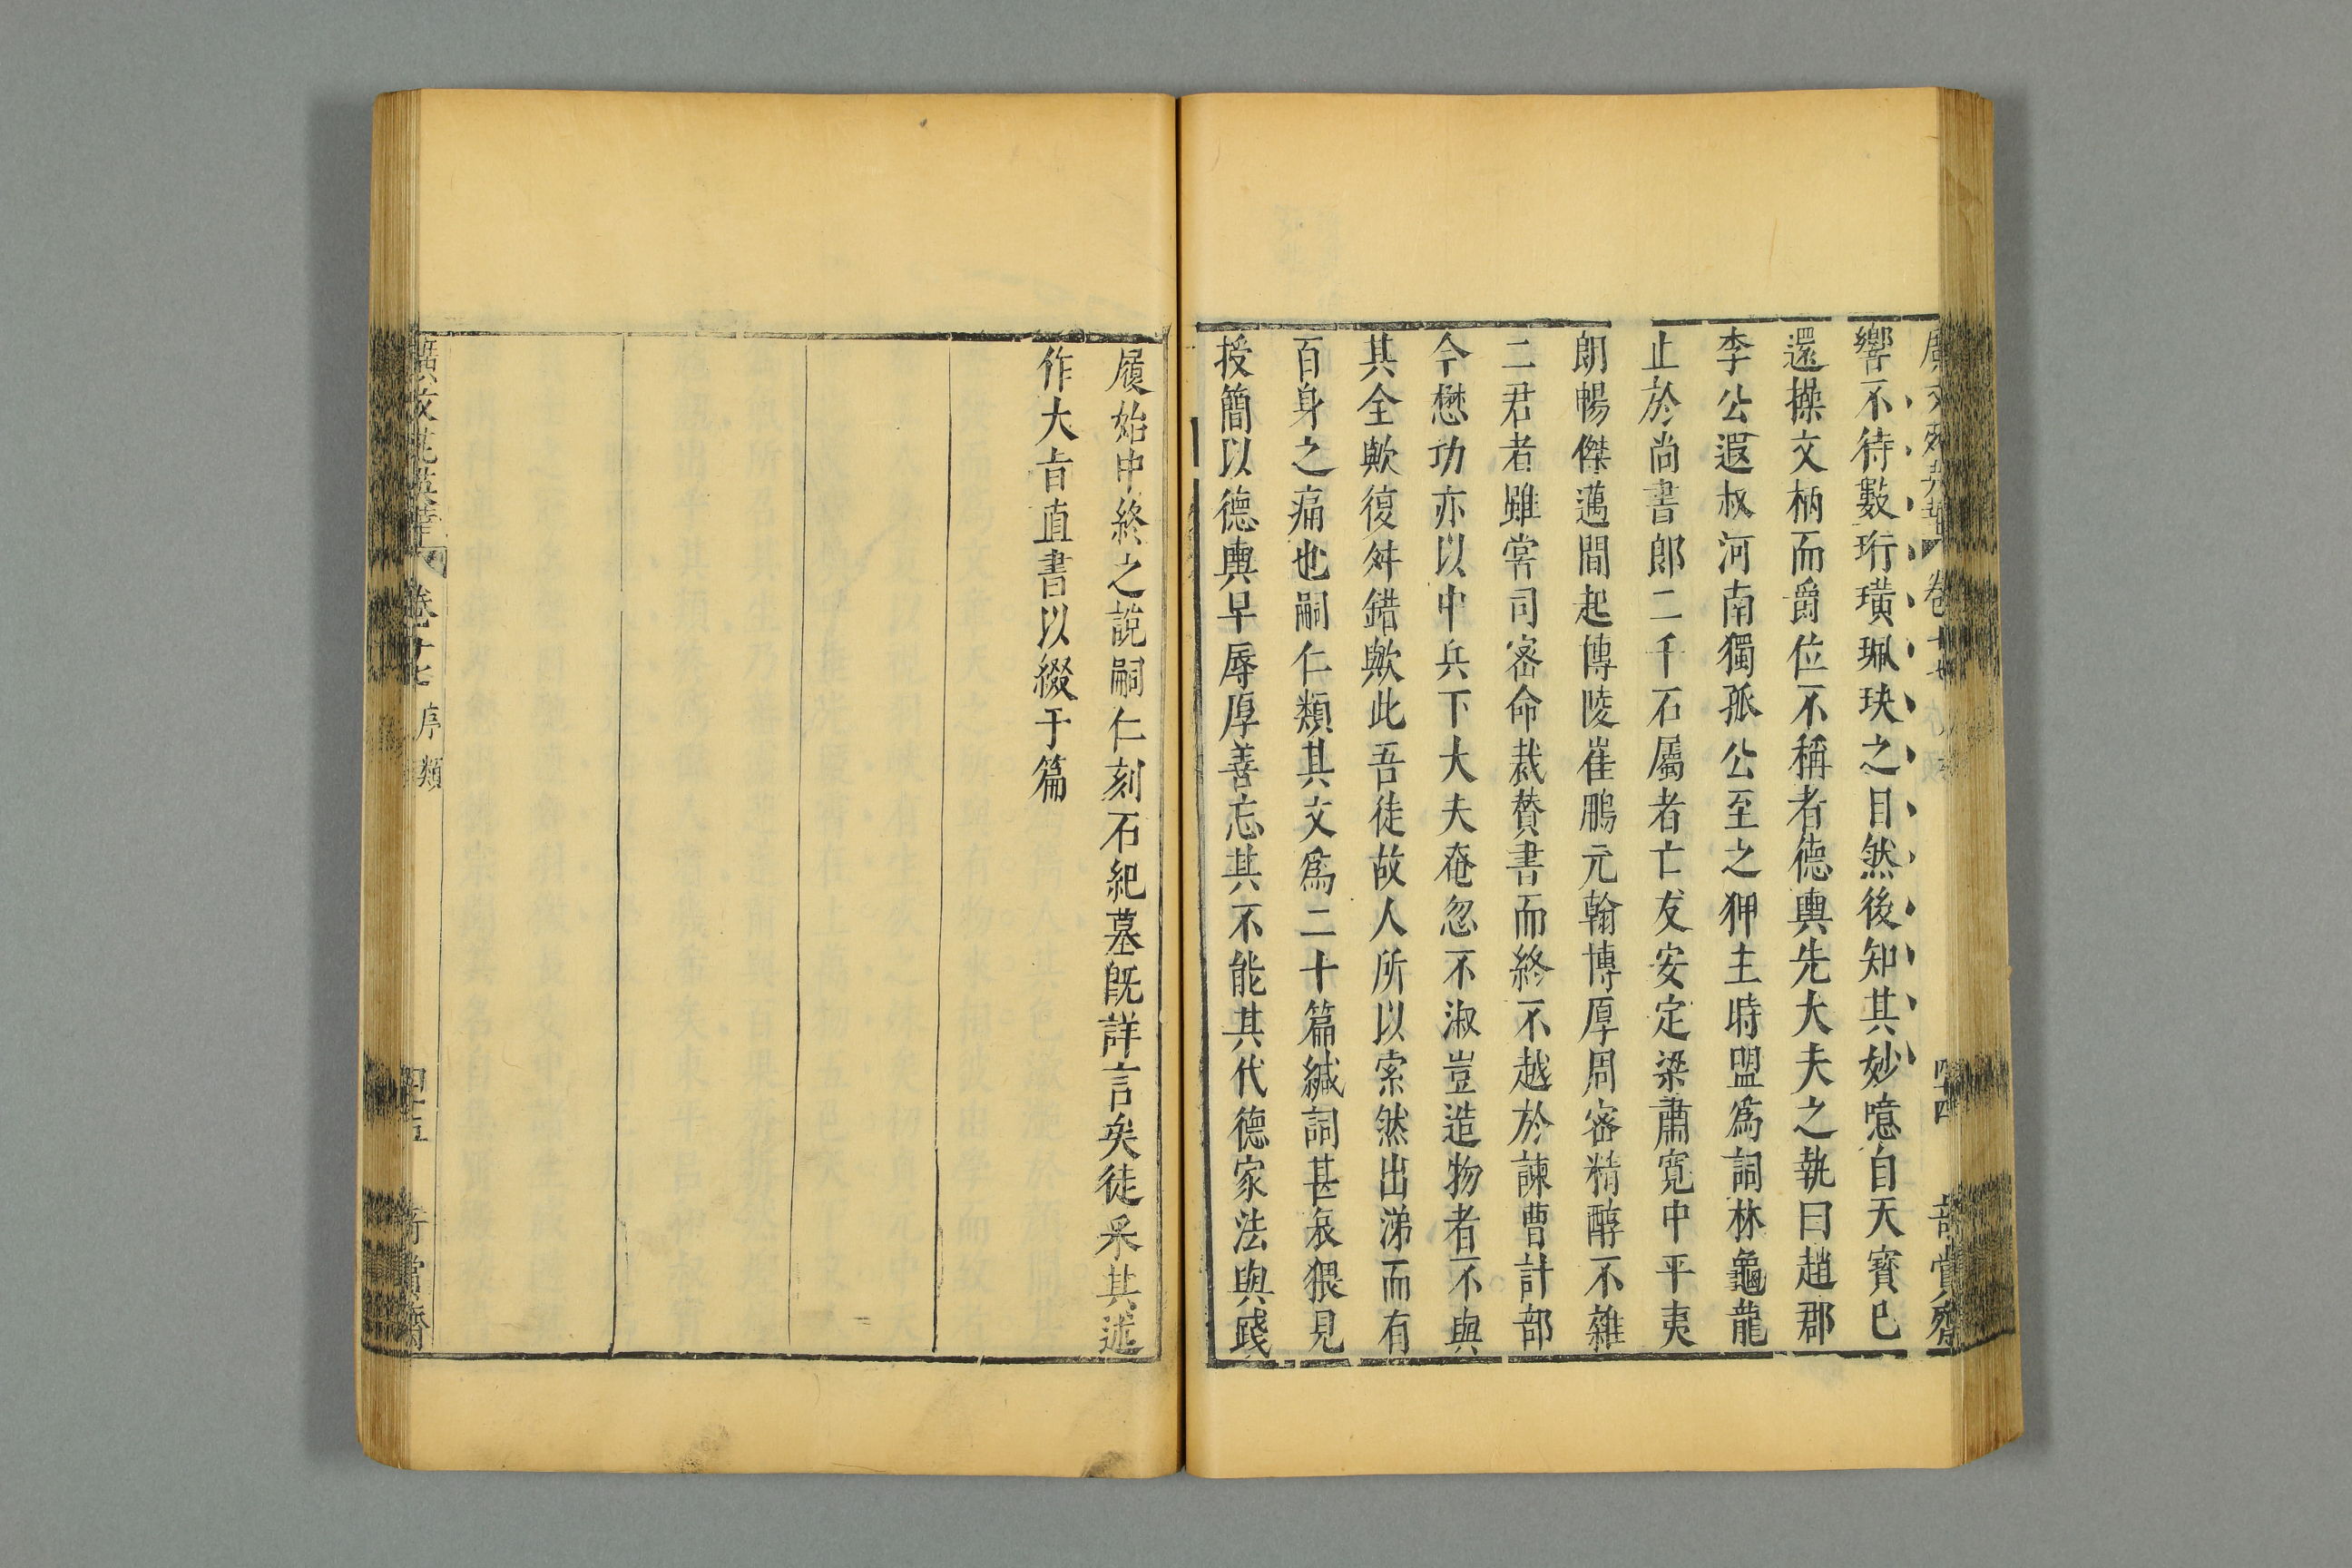 廣文苑英華 卷十七 四十四 奇賞齋
響不待數珩璜珮玦之目然後知其妙噫自天寶已
還操文柄而爵位不稱者德輿先大夫之執曰趙郡
李公遐叔河南獨孤公至之狎主時盟爲詞林龜龍
止於尚書郎二千石屬者亡友安定梁肅寬中平夷
朗暢傑邁間起博陵崔鵬元翰博厚周密精醇不雜
二君者雖常司密命裁賛書而終不越於諫曹計部
今懋功亦以中兵下大夫奄忽不淑豈造物者不與
其全歟復舛錯歟此吾徒故人所以索然出涕而有
百身之痛也嗣仁類其文爲二十篇緘詞甚哀猥見
授簡以德輿早辱厚善忘其不能其代德家法與踐
履始中終之說嗣仁刻石紀墓旣詳言矣徒采其述
作大㫖直書以綴于篇
廣文苑英華 卷十七 序類 四十五 奇賞齋